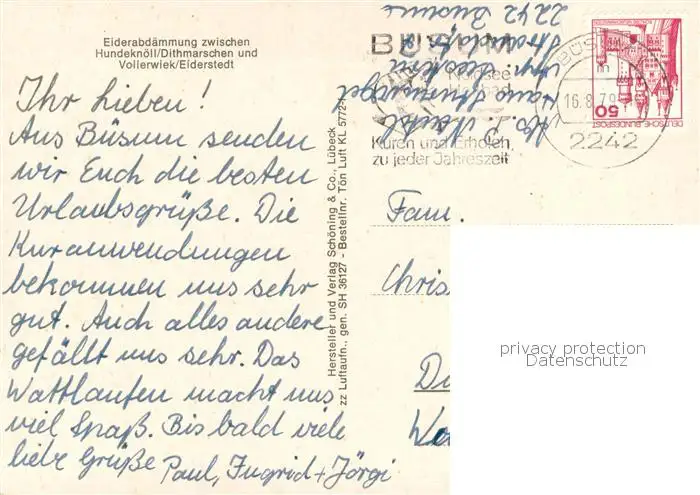 Eiderabdämmung zwischen
Hundeknöll/Dithmarschen und
Vollerwiek/Eiderstedt
Ihr Lieben!
Aus Büsum senden
wir Euch die besten
Urlaubsgrüße. Die
Kuranwendungen
bekommen uns sehr
gut. Auch alles andere
gefällt uns sehr. Das
Wattlaufen macht uns
viel Spaß. Bis bald viele
liebe Grüße Paul, Ingrid + Jörgi
Hersteller und Verlag Schöning & Co., Lübeck
zz Luftaufn., gen. SH 36127 - Bestellnr. Tön Luft KL 5772
2242 Büsum
Haus
BÜSUM
Nordsee
Kuren und Erholen
zu jeder Jahreszeit
BÜS
16.8.79
2242
DEUTSCHE BUNDESPOST
50
Fam.
Chris
privacy protection
Datenschutz